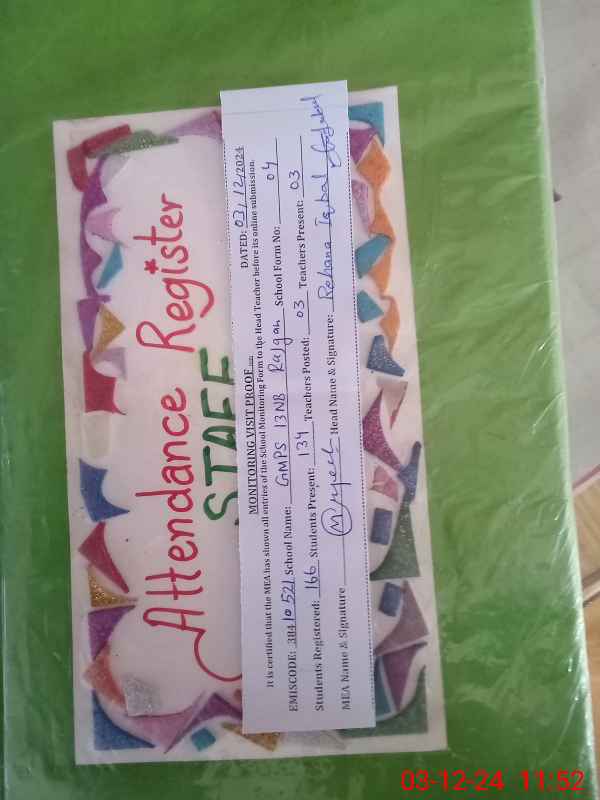 Attendance Register
STAFF
MONITORING VISIT PROOF
DATED: 03/12/2024
It is certified that the MEA has shown all entries of the School Monitoring Form to the Head Teacher before its online submission.
EMISCODE: 38410521 School Name: GMPS 13NB Rajgan School Form No: 04
Students Registered: 166 Students Present: 134 Teachers Posted: 03 Teachers Present: 03
MEA Name & Signature Head Name & Signature: Rehana Iqbal
03-12-24 11:52